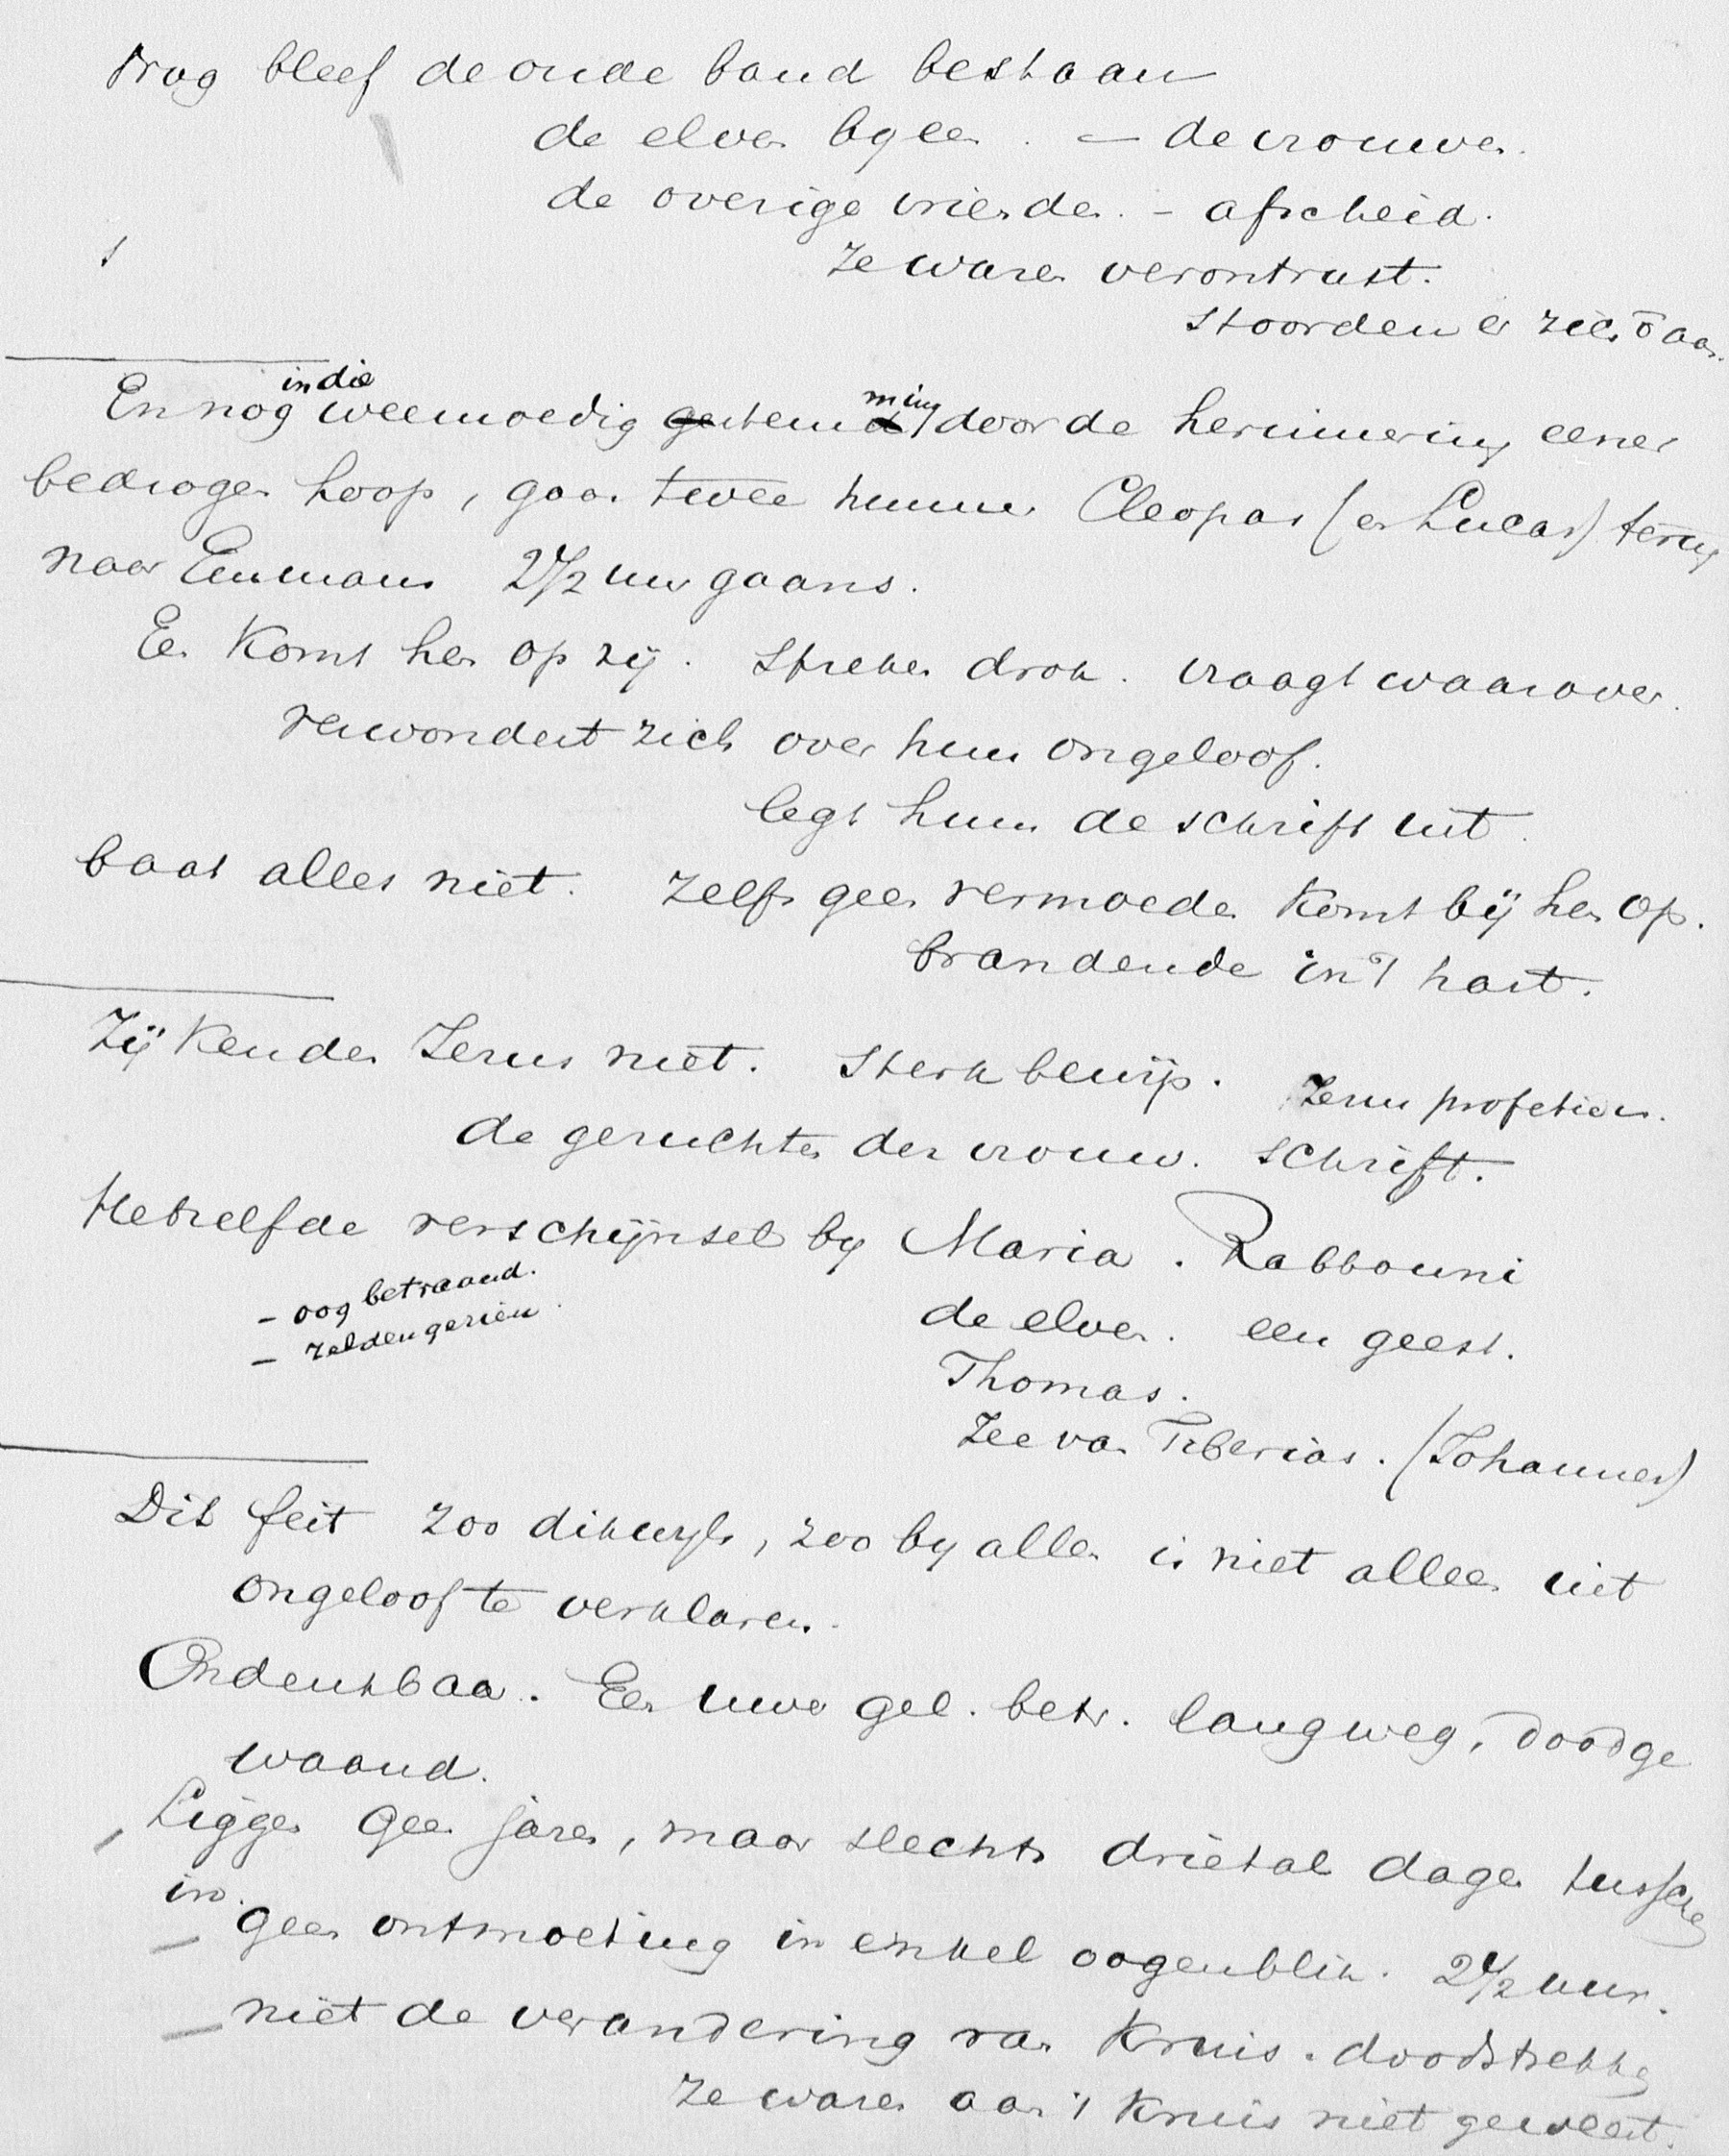 Nog bleef de oude band bestaan
de elven byeen. – de vrouwen.
de overige vrienden. – afscheid.
Ze waren verontrust.
stoorden er zich ō aan.
En nog in die weemoedig gestemdming door de herinnering eener
bedrogen hoop, gaan twee hunner Cleopas (en Lucas) terug
naar Emmaus 2 1/2 uur gaans.
Een komt hen op zij. Spreken drok. vraagt waarover.
verwondert zich over hun ongeloof.
legt hun de schrift uit.
baat alles niet. Zelfs geen vermoeden komt bij hen op.
brandende in 't hart.
Zij kenden Jezus niet. Sterk bewijs. Jezus profetien.
de geruchten der vrouw. schrift.
Hetzelfde verschijnsel by Maria. Rabbouni
– oog betraand.
– zelden gezien.
de elven. een geest.
Thomas.
Zee van Tiberias. (Johannes)
Dit feit zoo dikwyls, zoo by allen is niet alleen uit
ongeloof te verklaren.
Ondenkbaar. Een uwer gel. betr. lang weg, doodge
waand.
– Liggen geen jaren, maar slechts drietal dagen tusschen
in.
– geen ontmoeting in enkel oogenblik. 2 1/2 uur.
– niet de verandering van kruis. doodstrekken
ze waren aan 't kruis niet geweest.